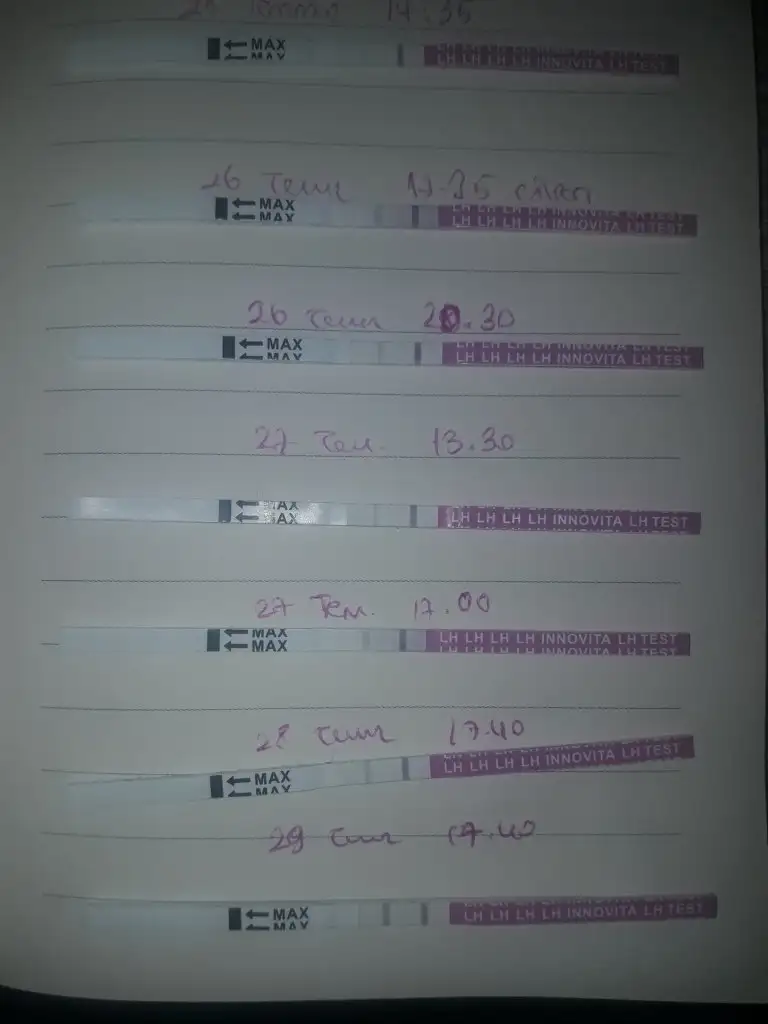 14:35
MAX
MAX
LH LH LH LH INNOVITA LH TEST
26 Temm
MAX
MAX
LH LH LH LH INNOVITA LH TEST
LH LH LH LH INNOVITA LH TEST
26 Temm 20.30
MAX
MAX
LH LH LH LH INNOVITA LH TEST
LH LH LH LH INNOVITA LH TEST
27 Tem. 13.30
MAX
MAX
LH LH LH LH INNOVITA LH TEST
27 Tem. 17.00
MAX
MAX
LH LH LH LH INNOVITA LH TEST
LH LH LH LH INNOVITA LH TEST
28 Temm 17.40
MAX
MAX
LH LH LH LH INNOVITA LH TEST
29 Temm 17.40
MAX
MAX
LH LH LH LH INNOVITA LH TEST
LH LH LH LH INNOVITA LH TEST